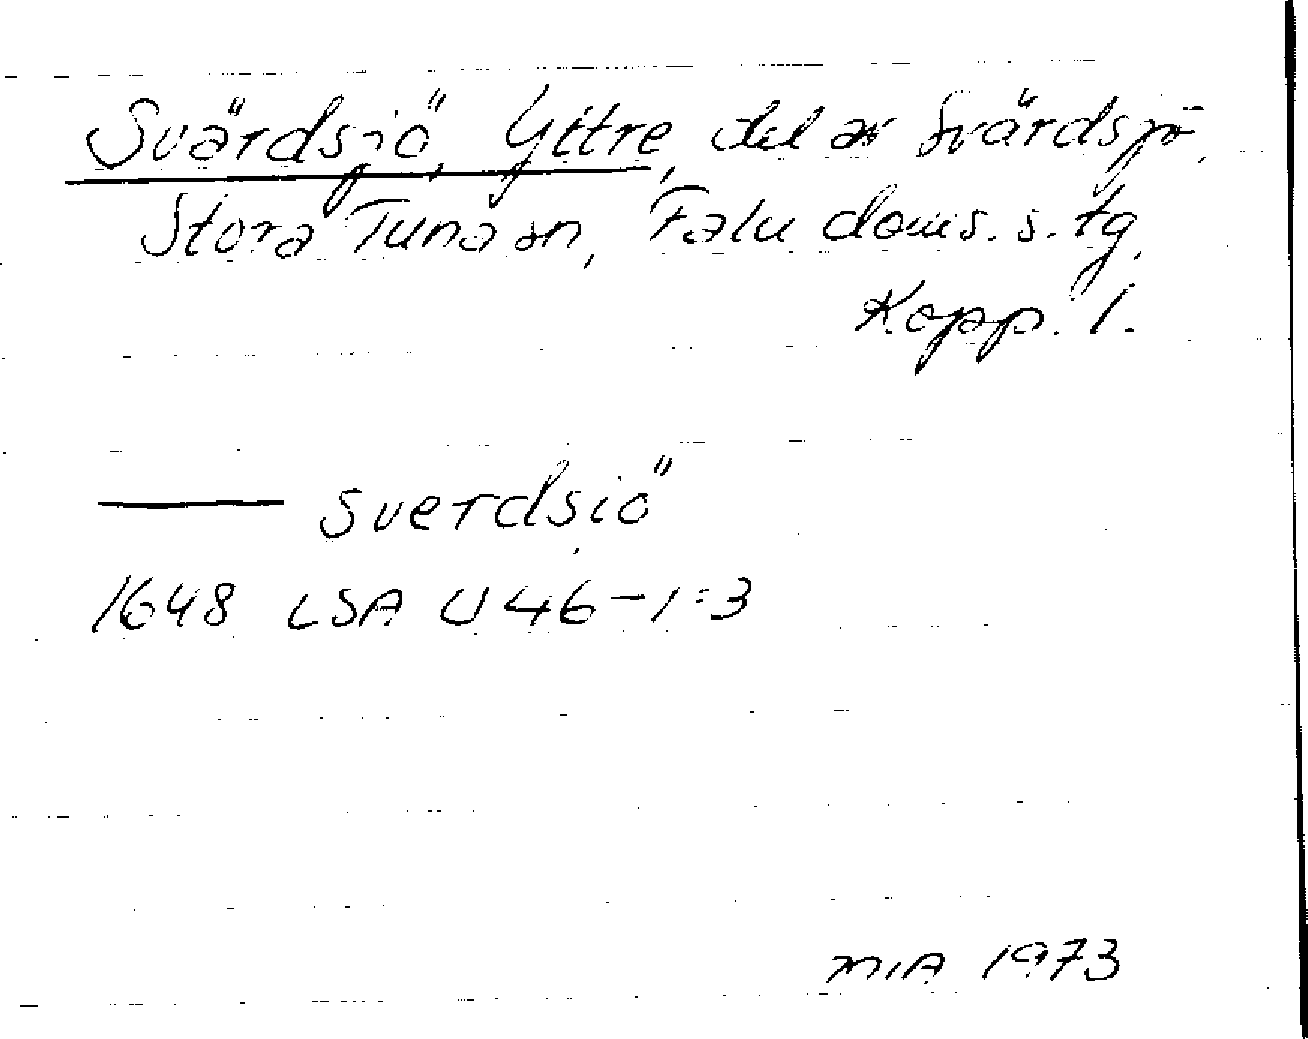 Svärdsjö, Yttre, del av Svärdsjö,
Stora Tuna sn, Falu doms. s. tg,
Kopp. l.
—— Sverdsiö
1648 LSA U 46-1:3
MIA 1973